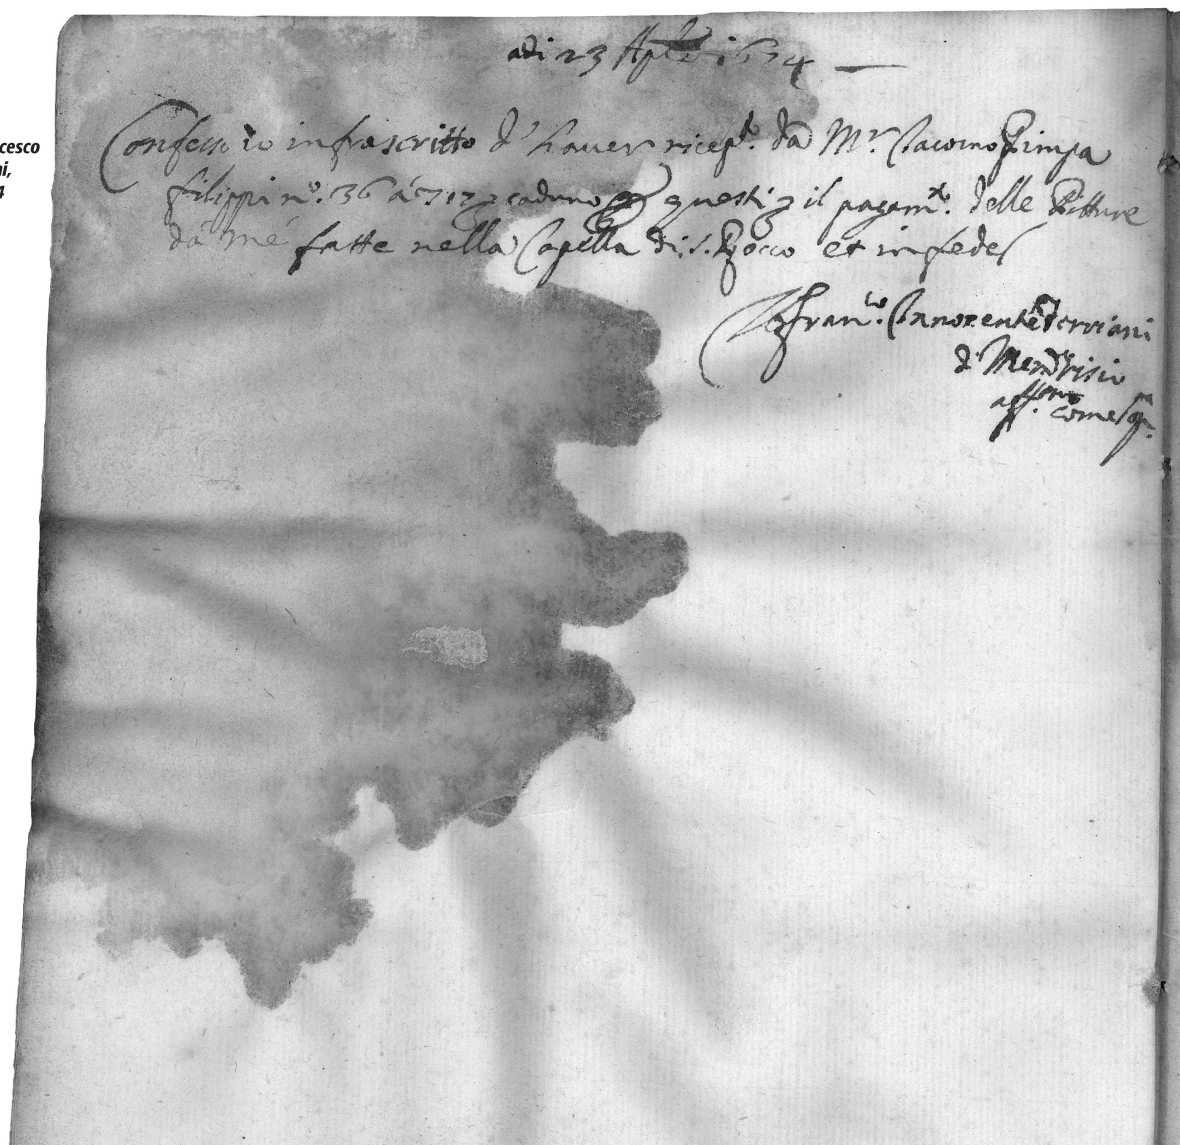 cesco
ni,
4
adi 23 Aple 1674
Confesso io infrascritto d'haver ricep.to da Mr. Giacomo Pimpa
filippi n.o 36 á caduno questi p il pagam.to delle Pitture
dá mé fatte nella Capella di S. Rocco et in fede
Io Fran.co Innocente Torriani
d Mendrisio
aff.mo come sop.a